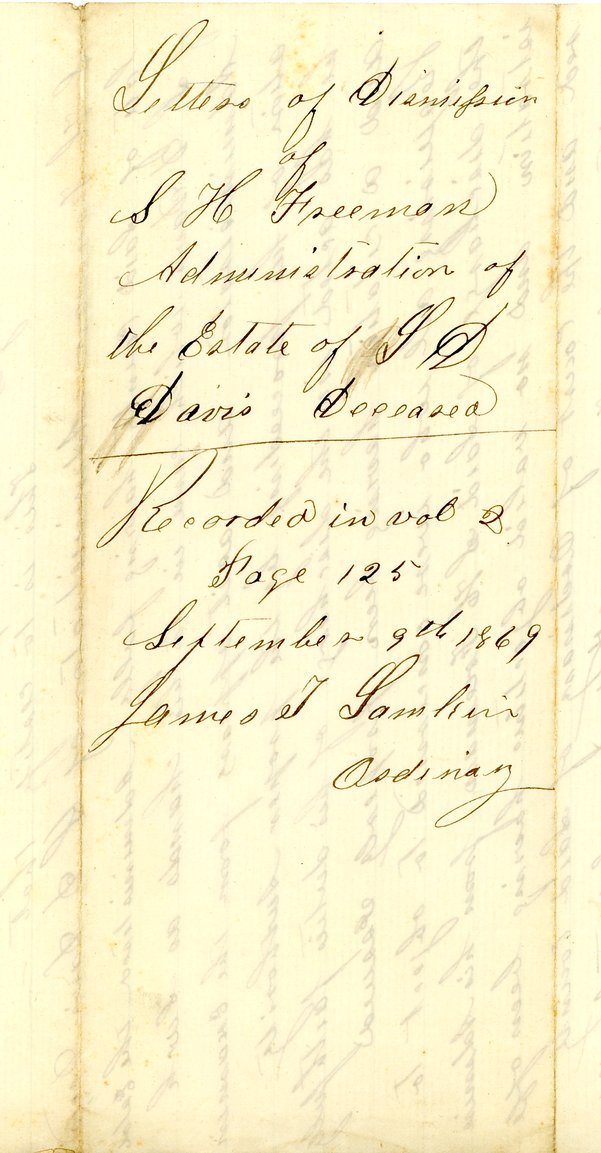 Letters of Dismission
of
S H Freeman
Administration of
the Estate of S D
Davis Deceased
Recorded in vol 2
Page 125
September 9th 1869
James T Lamkin
Ordinary